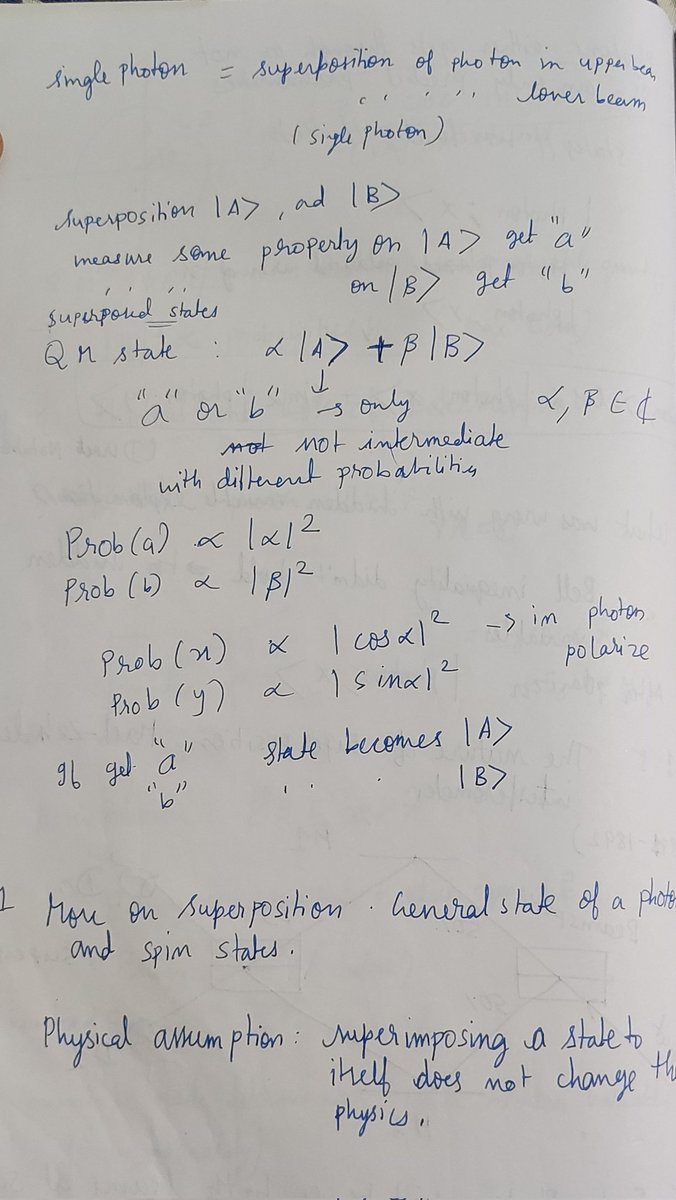 single photon = superposition of photon in upper beam
" " " " lower beam
(sigle photon)
superposition |A>, ad |B>
measure some property on |A> get "a"
" " " on |B> get "b"
superposed states
QM state : α |A> + β |B>
↓
"a" or "b" → only α, β ∈ ₵
not not intermediate
with different probabilities
Prob(a) ∝ |α|²
Prob (b) ∝ |β|²
Prob (x) ∝ |cosα|² → in photon
polarize
Prob (y) ∝ |sinα|²
If get "a" state becomes |A>
"b" " " |B>
1 More on superposition. General state of a photo
and spin states.
Physical assumption: superimposing a state to
itself does not change th
physics.